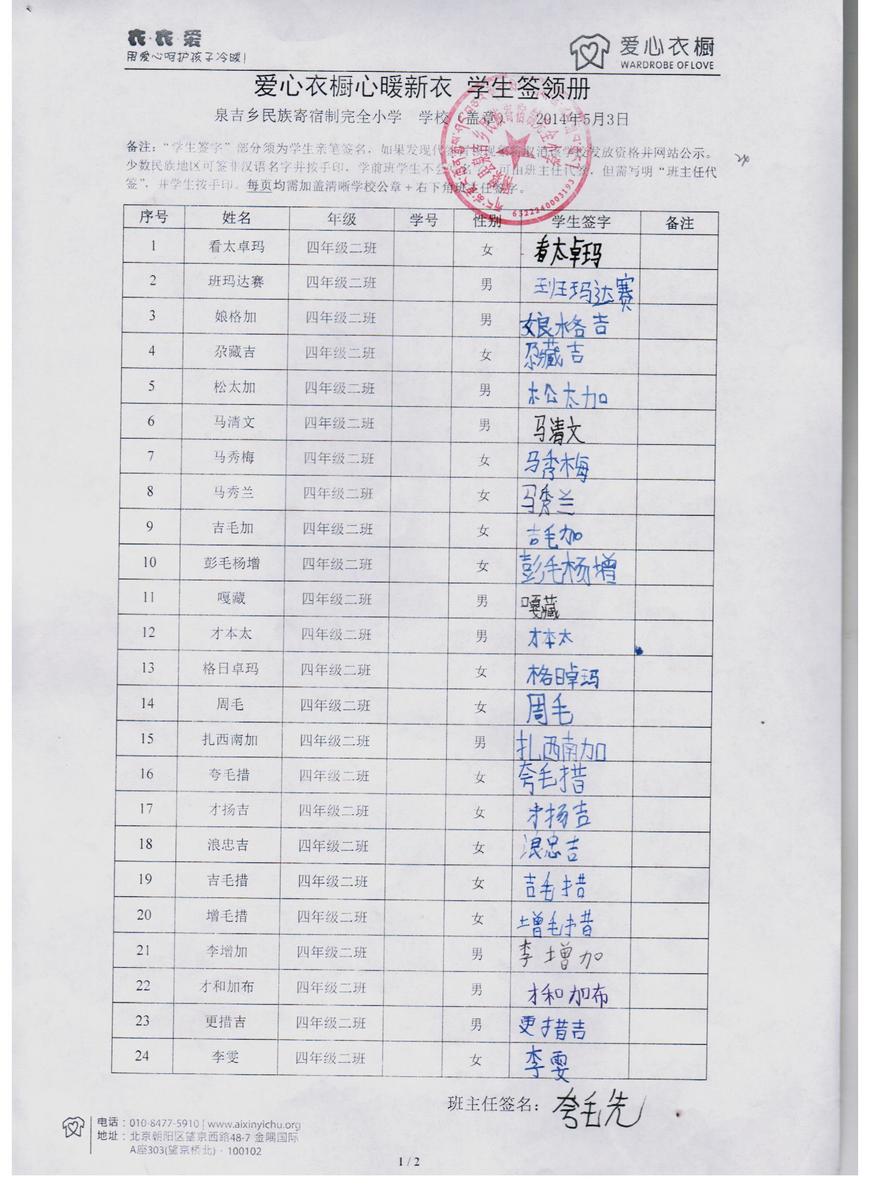 衣·衣·爱
用爱心呵护孩子冷暖!
爱心衣橱
WARDROBE OF LOVE
爱心衣橱心暖新衣 学生签领册
泉吉乡民族寄宿制完全小学 学校(盖章) 2014年5月3日
备注:“学生签字”部分须为学生亲笔签名,如果发现代 发放资格并网站公示。
少数民族地区可签非汉语名字并按手印,学前班学生不会 可由班主任代签,但需写明“班主任代
签”,并学生按手印。每页均需加盖清晰学校公章+右下角班主任签字。
6322240003193
序号 姓名 年级 学号 性别 学生签字 备注
1 看太卓玛 四年级二班 女 看太卓玛
2 班玛达赛 四年级二班 男 班玛达赛
3 娘格加 四年级二班 男 娘格吉
4 尕藏吉 四年级二班 女 尕藏吉
5 松太加 四年级二班 男 松太加
6 马清文 四年级二班 男 马清文
7 马秀梅 四年级二班 女 马秀梅
8 马秀兰 四年级二班 女 马秀兰
9 吉毛加 四年级二班 女 吉毛加
10 彭毛杨增 四年级二班 女 彭毛杨增
11 嘎藏 四年级二班 男 嘎藏
12 才本太 四年级二班 男 才本太
13 格日卓玛 四年级二班 女 格日卓玛
14 周毛 四年级二班 女 周毛
15 扎西南加 四年级二班 男 扎西南加
16 夸毛措 四年级二班 女 夸毛措
17 才扬吉 四年级二班 女 才扬吉
18 浪忠吉 四年级二班 女 浪忠吉
19 吉毛措 四年级二班 女 吉毛措
20 增毛措 四年级二班 女 增毛措
21 李增加 四年级二班 男 李增加
22 才和加布 四年级二班 男 才和加布
23 更措吉 四年级二班 男 更措吉
24 李雯 四年级二班 女 李雯
班主任签名:夸毛先
电话:010-8477-5910 | www.aixinyichu.org
地址:北京朝阳区望京西路48-7 金隅国际
A座303(望京桥北)·100102
1 / 2